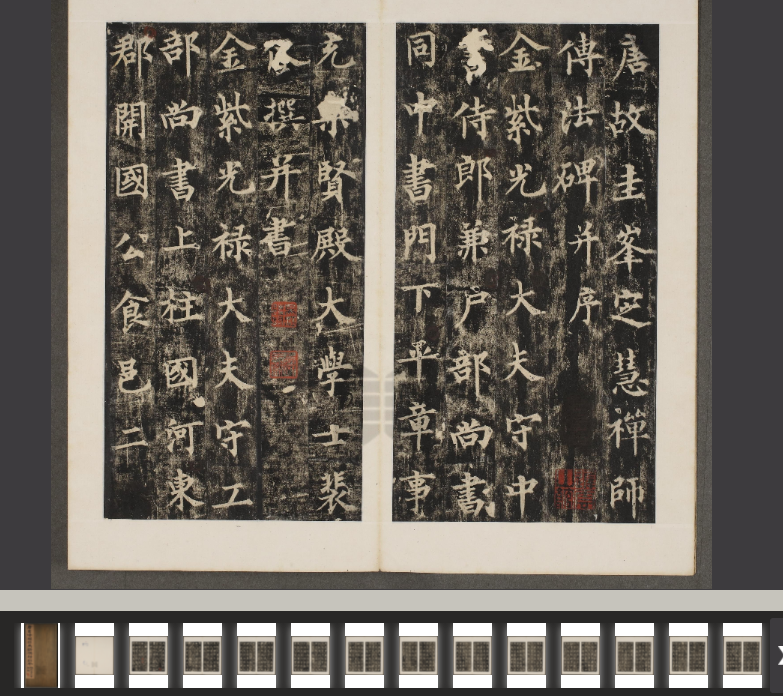 唐故圭峯定慧禪師
傳法碑并序
金紫光禄大夫守中
書侍郎兼户部尚書
同中書門下平章事
充集賢殿大學士裴
休撰并書
金紫光禄大夫守工
部尚書上柱國河東
郡開國公食邑二